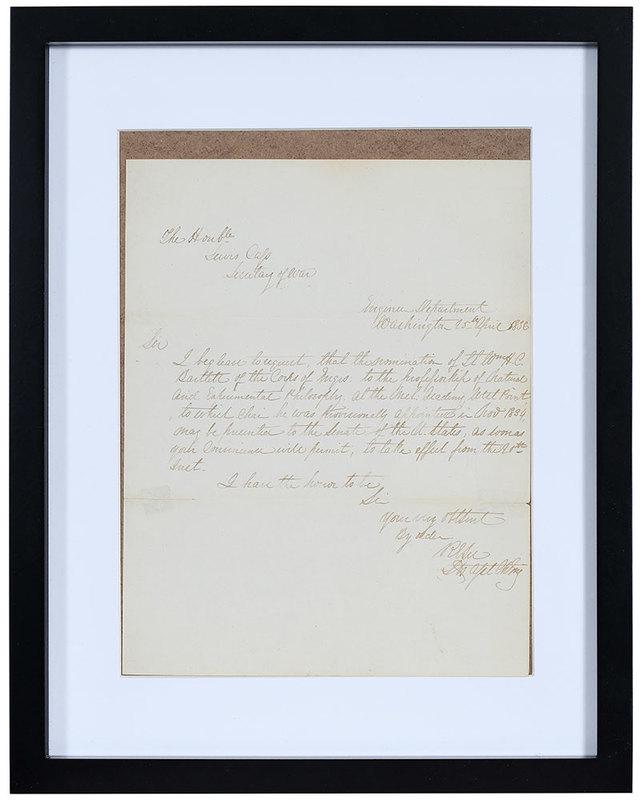 The Honble
Lewis Cass
Secretary of War
Engineer Department
Washington 25th April 1836
Sir
I beg leave to request, that the nomination of Lt Wm H. C.
Bartlett of the Corps of Engrs. to the professorship of Natural
and Experimental Philosophy, at the Mil. Academy West Point,
to which Chair he was provisionally appointed in Novr 1834,
may be presented to the Senate of the U. States, as soon as
your Convenience will permit, to take effect from the 20th
Inst.
I have the honor to be,
Sir
Your very Obt Servt
By order
R E Lee